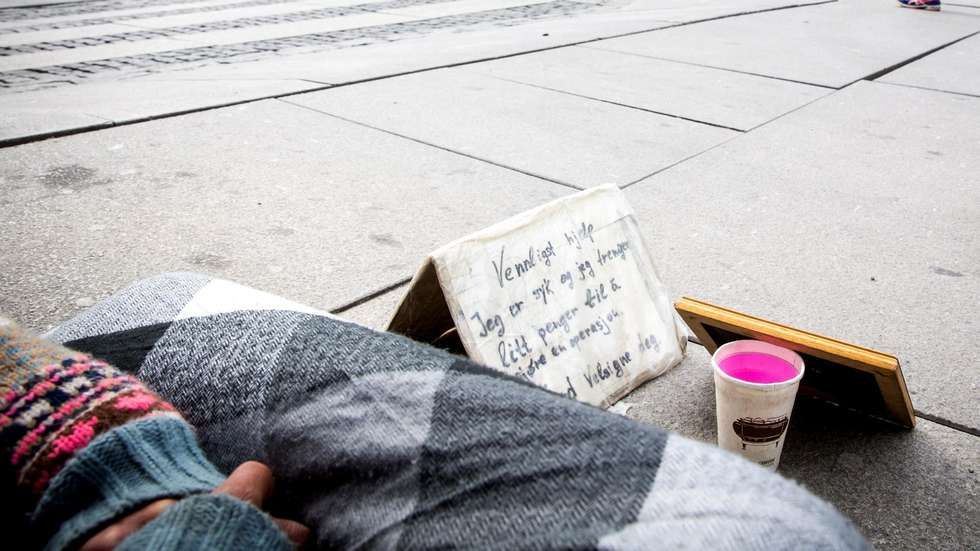 Vennligst hjelp
Jeg er syk og jeg trenger
litt penger til å
gjøre en operasjon
Velsigne deg